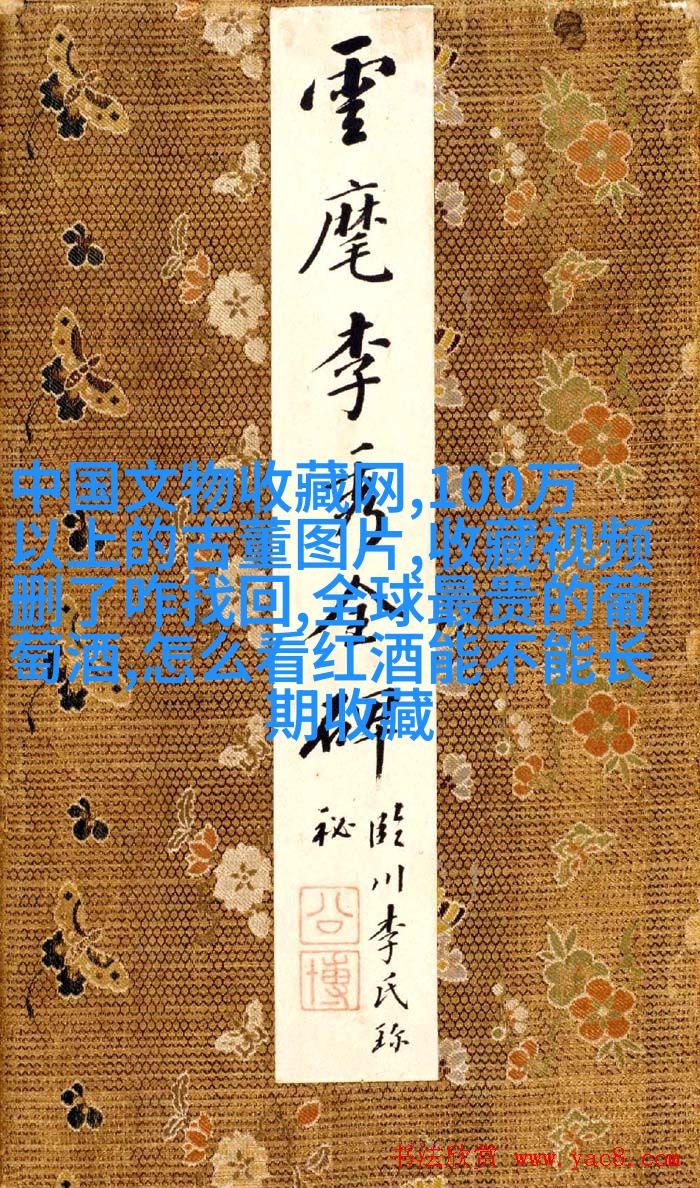 雲麾李秀全碑
臨川李氏珍
秘
公博
中国文物收藏网,100万
以上的古董图片,收藏视频
删了咋找回,全球最贵的葡
萄酒,怎么看红酒能不能长
期收藏
书法欣赏 www.yac8.com